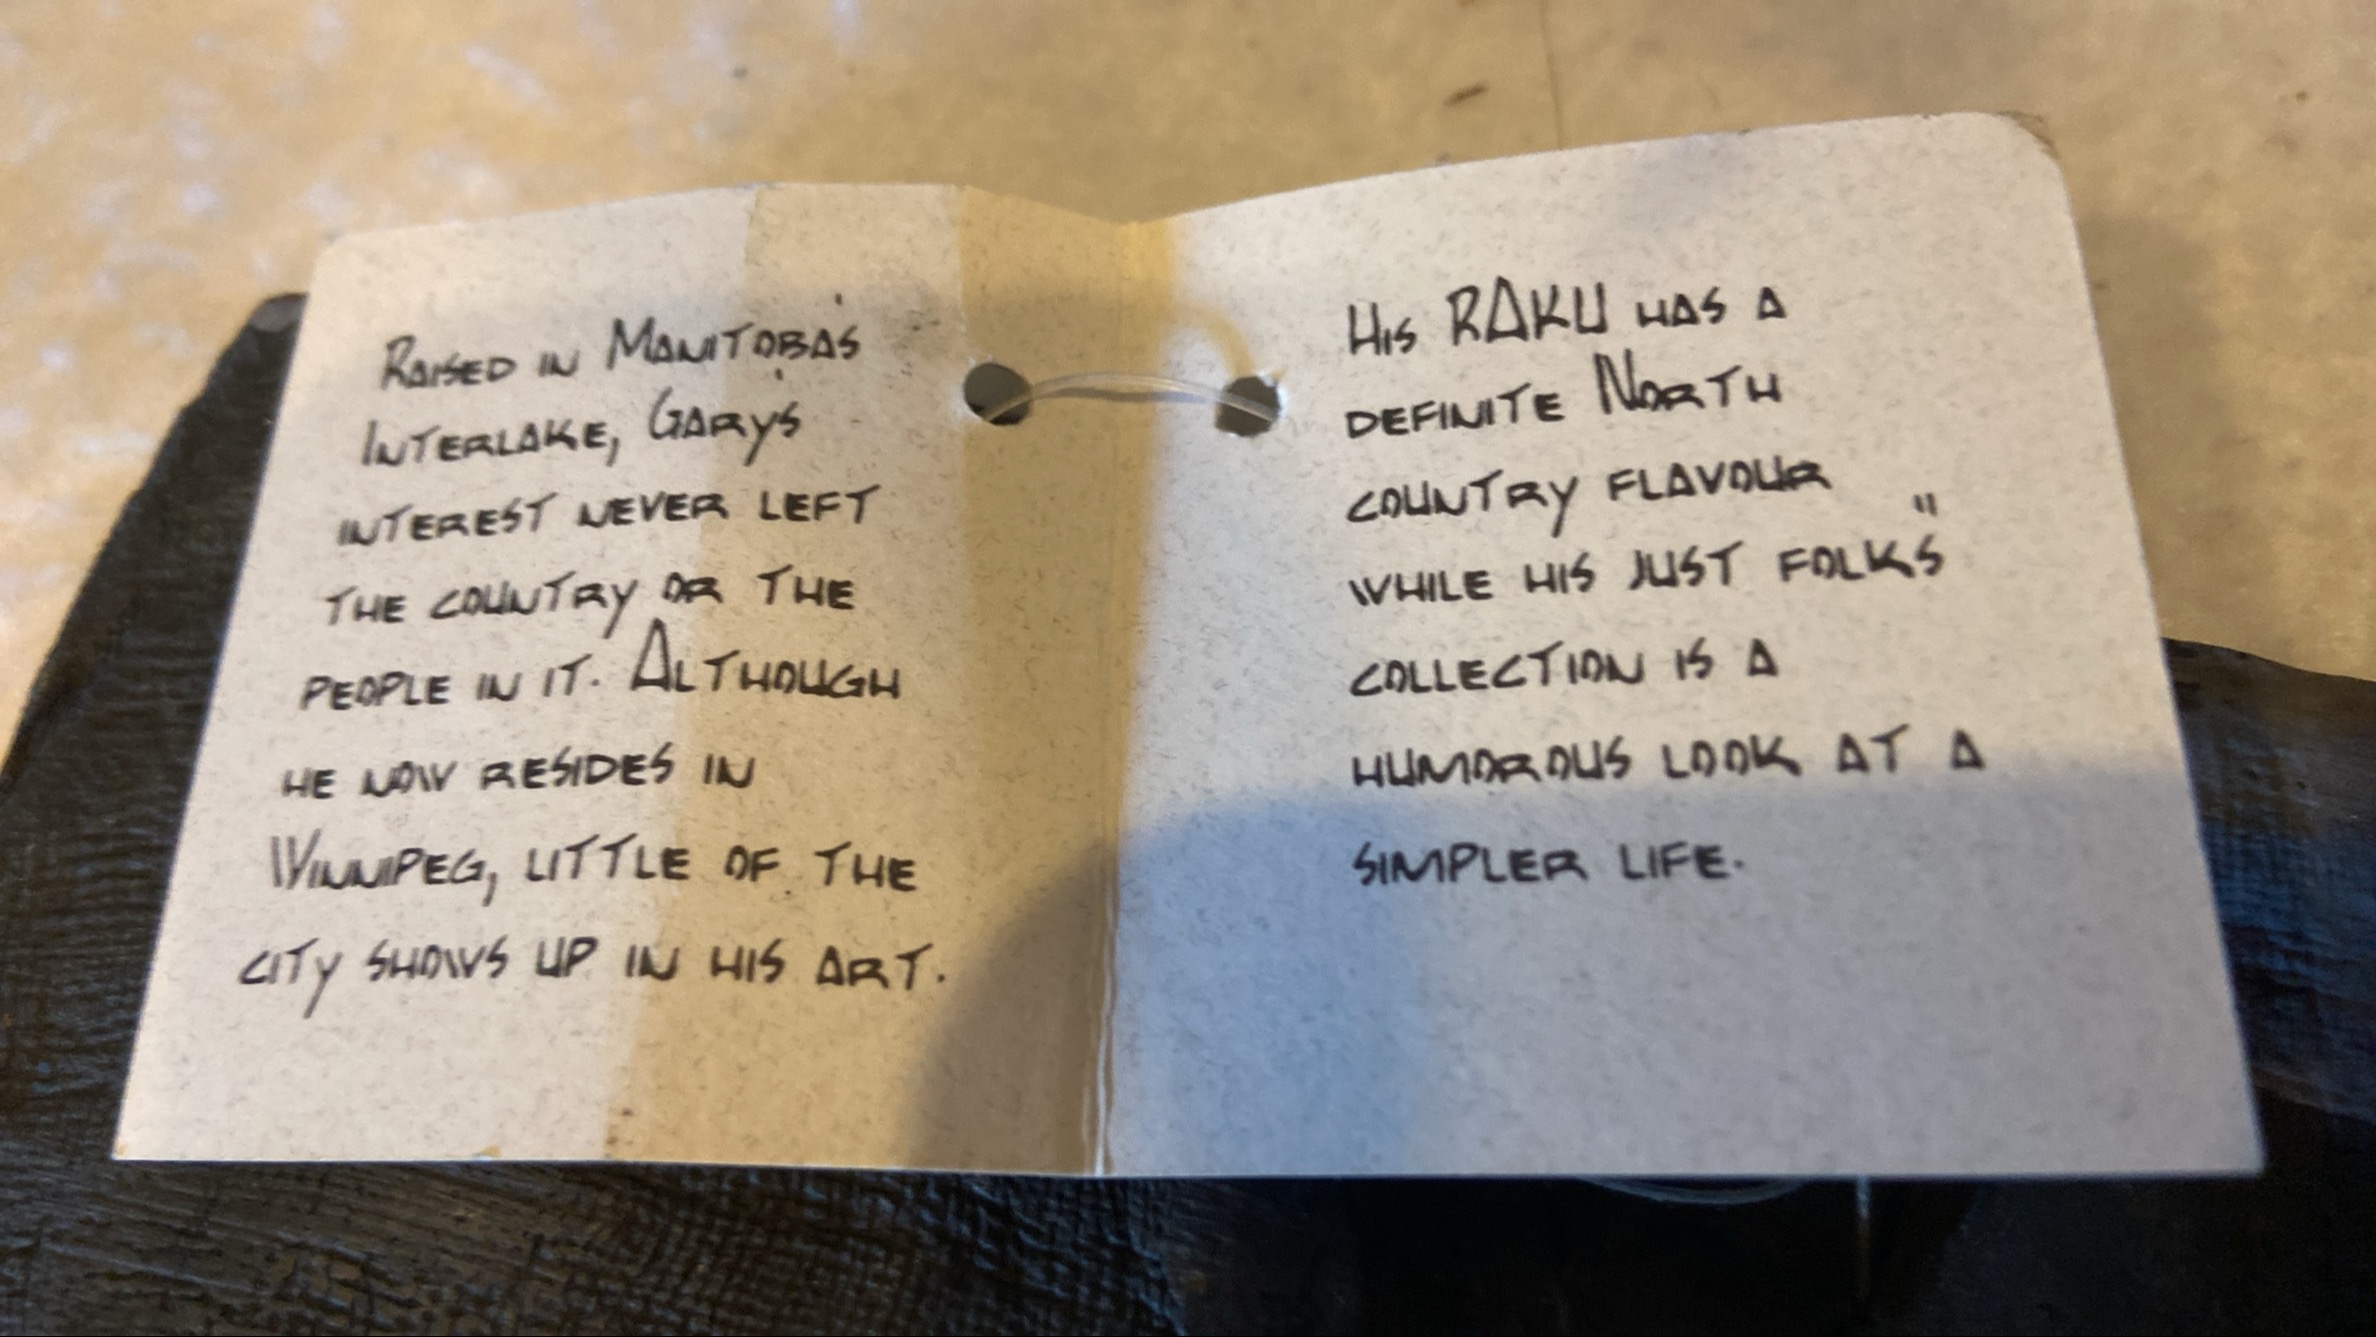 Raised in Manitoba's
Interlake, Garys
interest never left
the country or the
people in it. Although
he now resides in
Winnipeg, little of the
city shows up in his art.
His RAKU has a
definite North
country flavour
while his just folks"
collection is a
humorous look at a
simpler life.